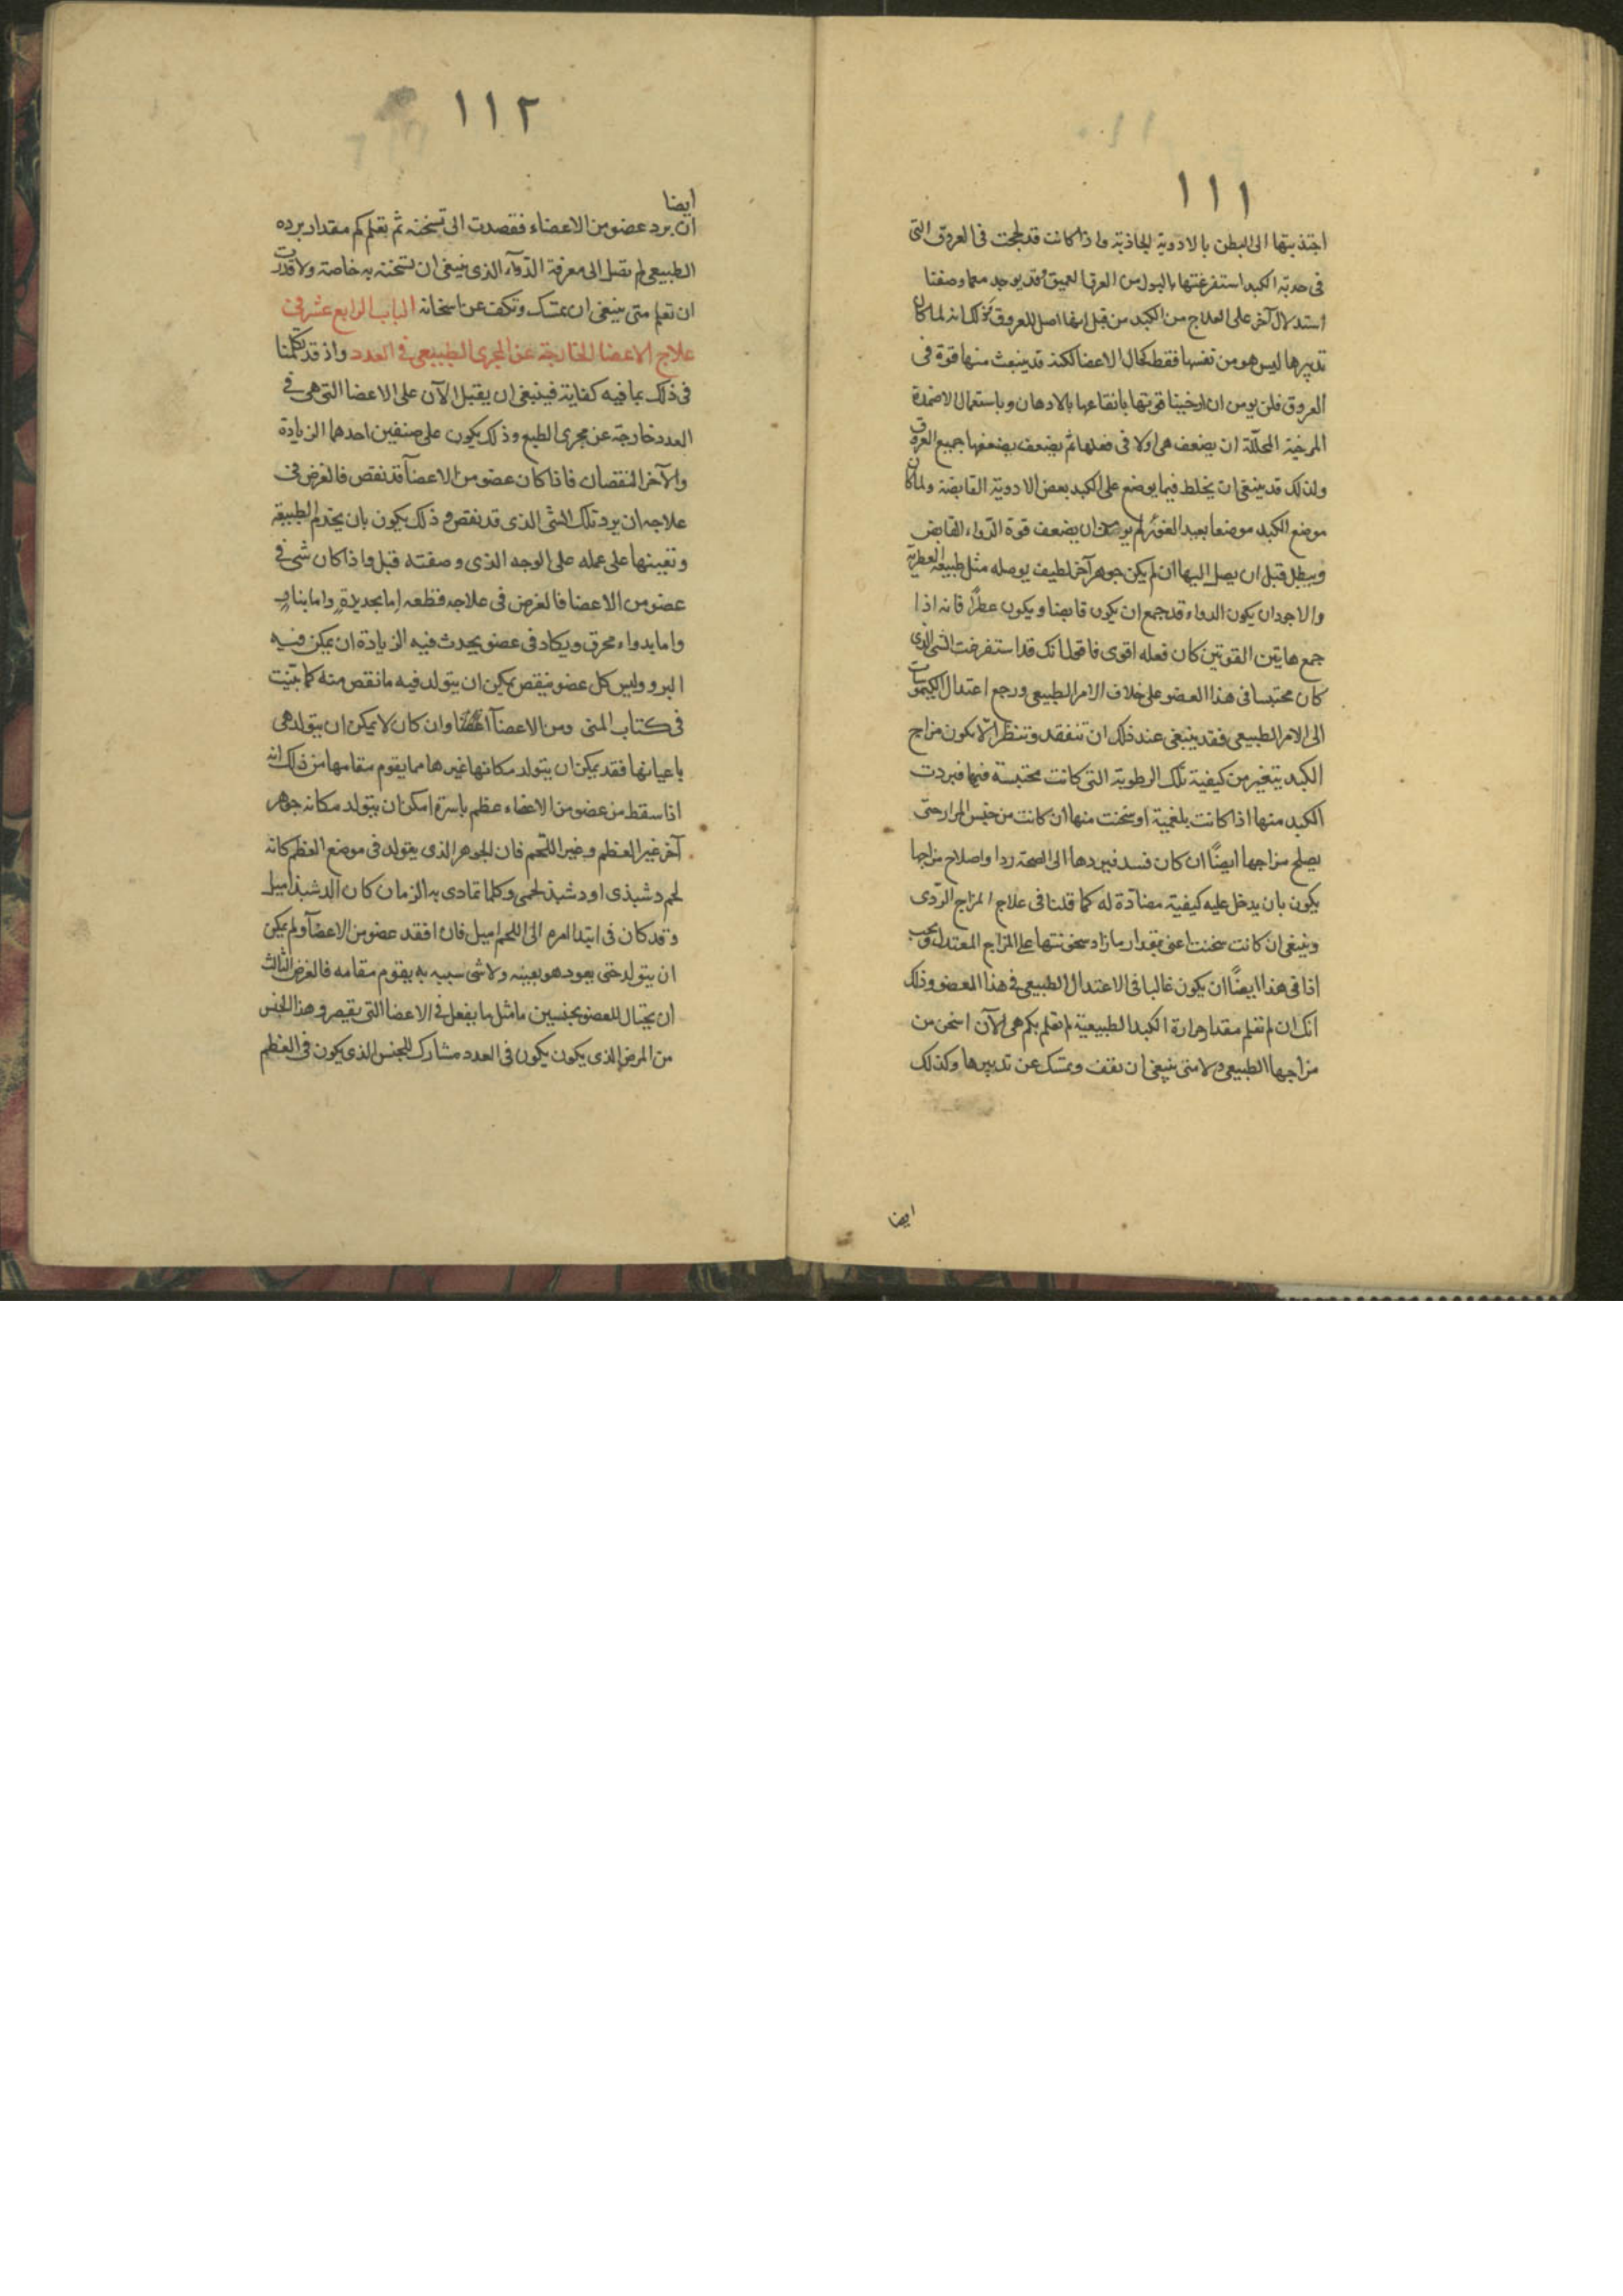 ١١١
اجتذبتها الى البطن بالادوية الجاذبة واذا كانت قد لحجت فى العروق التى
فى حدبة الكبد استفرغتها بالبول من العرق العميق وقد يوجد مما وصفنا
استدلال آخر على العلاج من الكبد من قبل انها اصل للعروق وذلك انه لما كان
تدبيرها ليس هو من نفسها فقط كحال الاعضا لكنه قد ينبعث منها قوة فى
العروق فلن يومن ان ارخينا قوتها بانقاعها بالادهان وباستعمال الاضمدة
المرخية المحللة ان يضعف هى اولا فى فعلها ثم يضعف بضعفها جميع العروق
ولذلك قد ينبغى ان يخلط فيما يوضع على الكبد بعض الادوية القابضة ولما كان
موضع الكبد موضعا بعيد الغور لم يومن ان يضعف قوة الدواء القابض
ويبطل قبل ان يصل اليها ان لم يكن جوهر آخر لطيف يوصله مثل طبيعة العطرية
والاجود ان يكون الدواء قد جمع ان يكون قابضا ويكون عطرًا فانه اذا
جمع هاتين القوتين كان فعله اقوى فاقول انك قد استفرغت الشى الذى
كان محتبسا فى هذا العضو على خلاف الامر الطبيعى ورجع اعتدال الكيموسات
الى الامر الطبيعى فقد ينبغى عند ذلك ان تتفقد وتنظر الا يكون مزاج
الكبد يتغير من كيفية تلك الرطوبة التى كانت محتبسة فيها فبردت
الكبد منها اذا كانت بلغمية او سخنت منها ان كانت من جنس المرار حتى
يصلح مزاجها ايضًا ان كان فسد فيردها الى الصحة ردا واصلاح مزاجها
يكون بان يدخل عليه كيفية مضادة له كما قلنا فى علاج المزاج الردى
وينبغى ان كانت سخنت اعنى بمقدار ما زاد سخونتها على المزاج المعتدل ويجب
اذا فى هذا ايضًا ان يكون غالبا فى الاعتدال الطبيعى فى هذا العضو وذلك
انك ان لم تعلم مقدار حرارة الكبد الطبيعية لم تعلم بكم هى الآن اسخن من
مزاجها الطبيعى ولا متى ينبغى ان تقف وتمسك عن تدبيرها وكذلك
ايضا
١١٢
ايضا
ان برد عضو من الاعضاء فقصدت الى تسخنه ثم تعلم كم مقدار برده
الطبيعى لم تصل الى معرفة الدواء الذى ينبغى ان تسخنه به خاصة ولا قدرت
ان تعلم متى ينبغى ان تمسك وتكف عن اسخانه الباب الرابع عشر فى
علاج الاعضا الخارجة عن المجرى الطبيعى فى العدد واذ قد تكلمنا
فى ذلك بما فيه كفاية فينبغى ان يقبل الآن على الاعضا التى هى فى
العدد خارجة عن مجرى الطبع وذلك يكون على صنفين احدهما الزيادة
والآخر النقصان فاذا كان عضو من الاعضآ قد نقص فالغرض فى
علاجه ان يرد تلك الشى الذى قد نقص وذلك يكون بان يخدم الطبيعة
وتعينها على عمله على الوجه الذى وصفته قبل واذا كان شى فى
عضو من الاعضا فالغرض فى علاجه قطعه اما بحديدة واما بنار
واما بدواء محرق ويكاد فى عضو يحدث فيه الزيادة ان يمكن فيه
البرو وليس كل عضو ينقص يمكن ان يتولد فيه ما نقص منه كما بينت
فى كتاب المنى ومن الاعضآ اعضا وان كان لا يمكن ان يتولد هى
باعيانها فقد يمكن ان يتولد مكانها غيرها مما يقوم مقامها من ذلك انه
اذا سقط من عضو من الاعضاء عظم باسره امكن ان يتولد مكانه جوهر
آخر غير العظم وغير اللحم فان الجوهر الذى يتولد فى موضع العظم كانه
لحم دشبذى او دشبذ لحمى وكلما تمادى به الزمان كان الدشبذ اميل
وقد كان فى ابتدا امره الى اللحم اميل فاذا فقد عضو من الاعضآ ولم يكن
ان يتولد حتى يعود هو بعينه ولا شى شبيه به يقوم مقامه فالغرض الثالث
ان يحتال للعضو بجنسين ما مثل ما يفعل فى الاعضا التى يقصر وهذا الجنس
من المرض الذى يكون يكون فى العدد مشارك للجنس الذى يكون فى العظم